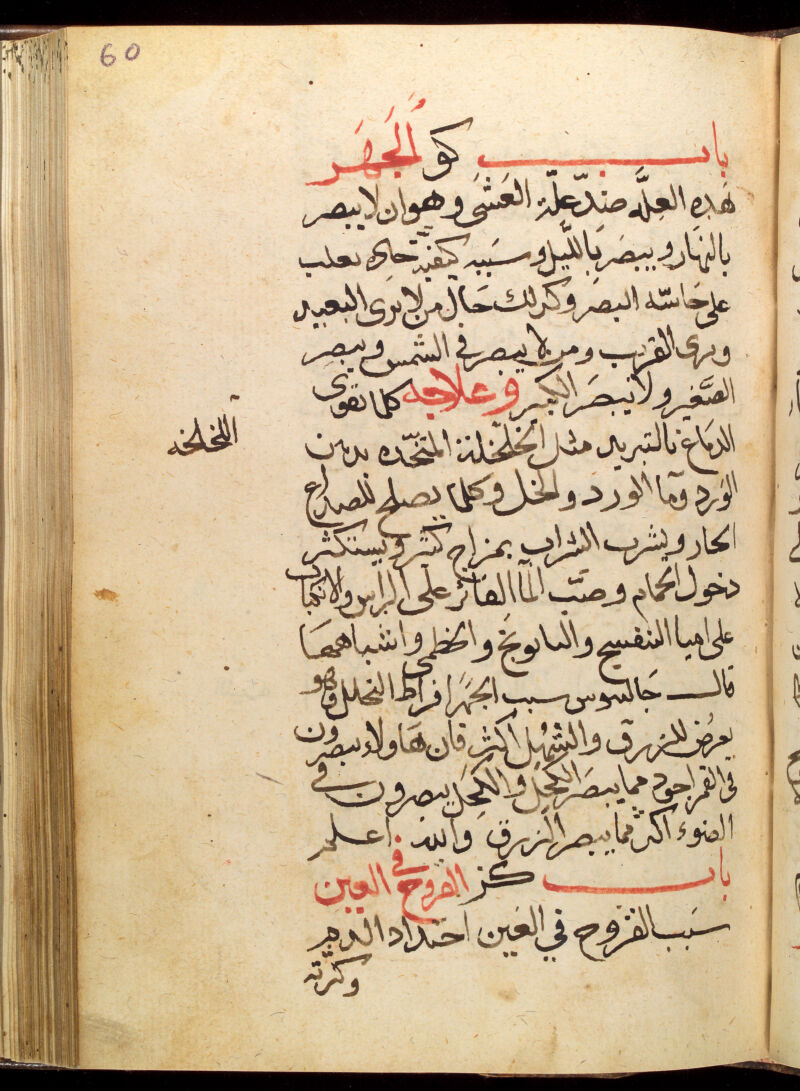 60
باب كو الجَهَر
هذه العِلَّه ضدّ علّة العَشَى وهو ان لا يبصر
بالنهار ويبصَر بالليل وسَببه كيفيّة حاده تعلب
على حَاسّه البصر وكذلك حَال من لا يرى البعيد
ويرى القريب ومن لا يبصر في الشمس ويبصر
الصّغير ولا يبصَر الكبير وعلاجه كلما يقوى
الدماغ بالتبريد مثل الخلخلة المتّخده بدهن
اللخلخه
الورد وما الورد والخل وكلما يصلح للصداع
الحار ويشرب الشراب بمزاج كثير ويستكثر
دخول الحمام وصَبّ المآ الفاتر على الراس والانكباب
على مياا البنفسج والبابونج والخطمى واشباههمَا
قال جَالينوس سبب الجَهَر افراط التحلل وهو
يعرُض للزرق والشُهُل اكثر فان هَاولاء يبصرون
في القمر اجود مما يبصَر الكُحْل والكُحل يبصرون في
الضوء اكثر مما يبصر الزرق والله اعلم
باب كز القروح في العين
سَبَب القروح في العَين احتداد الدم
وكثرته